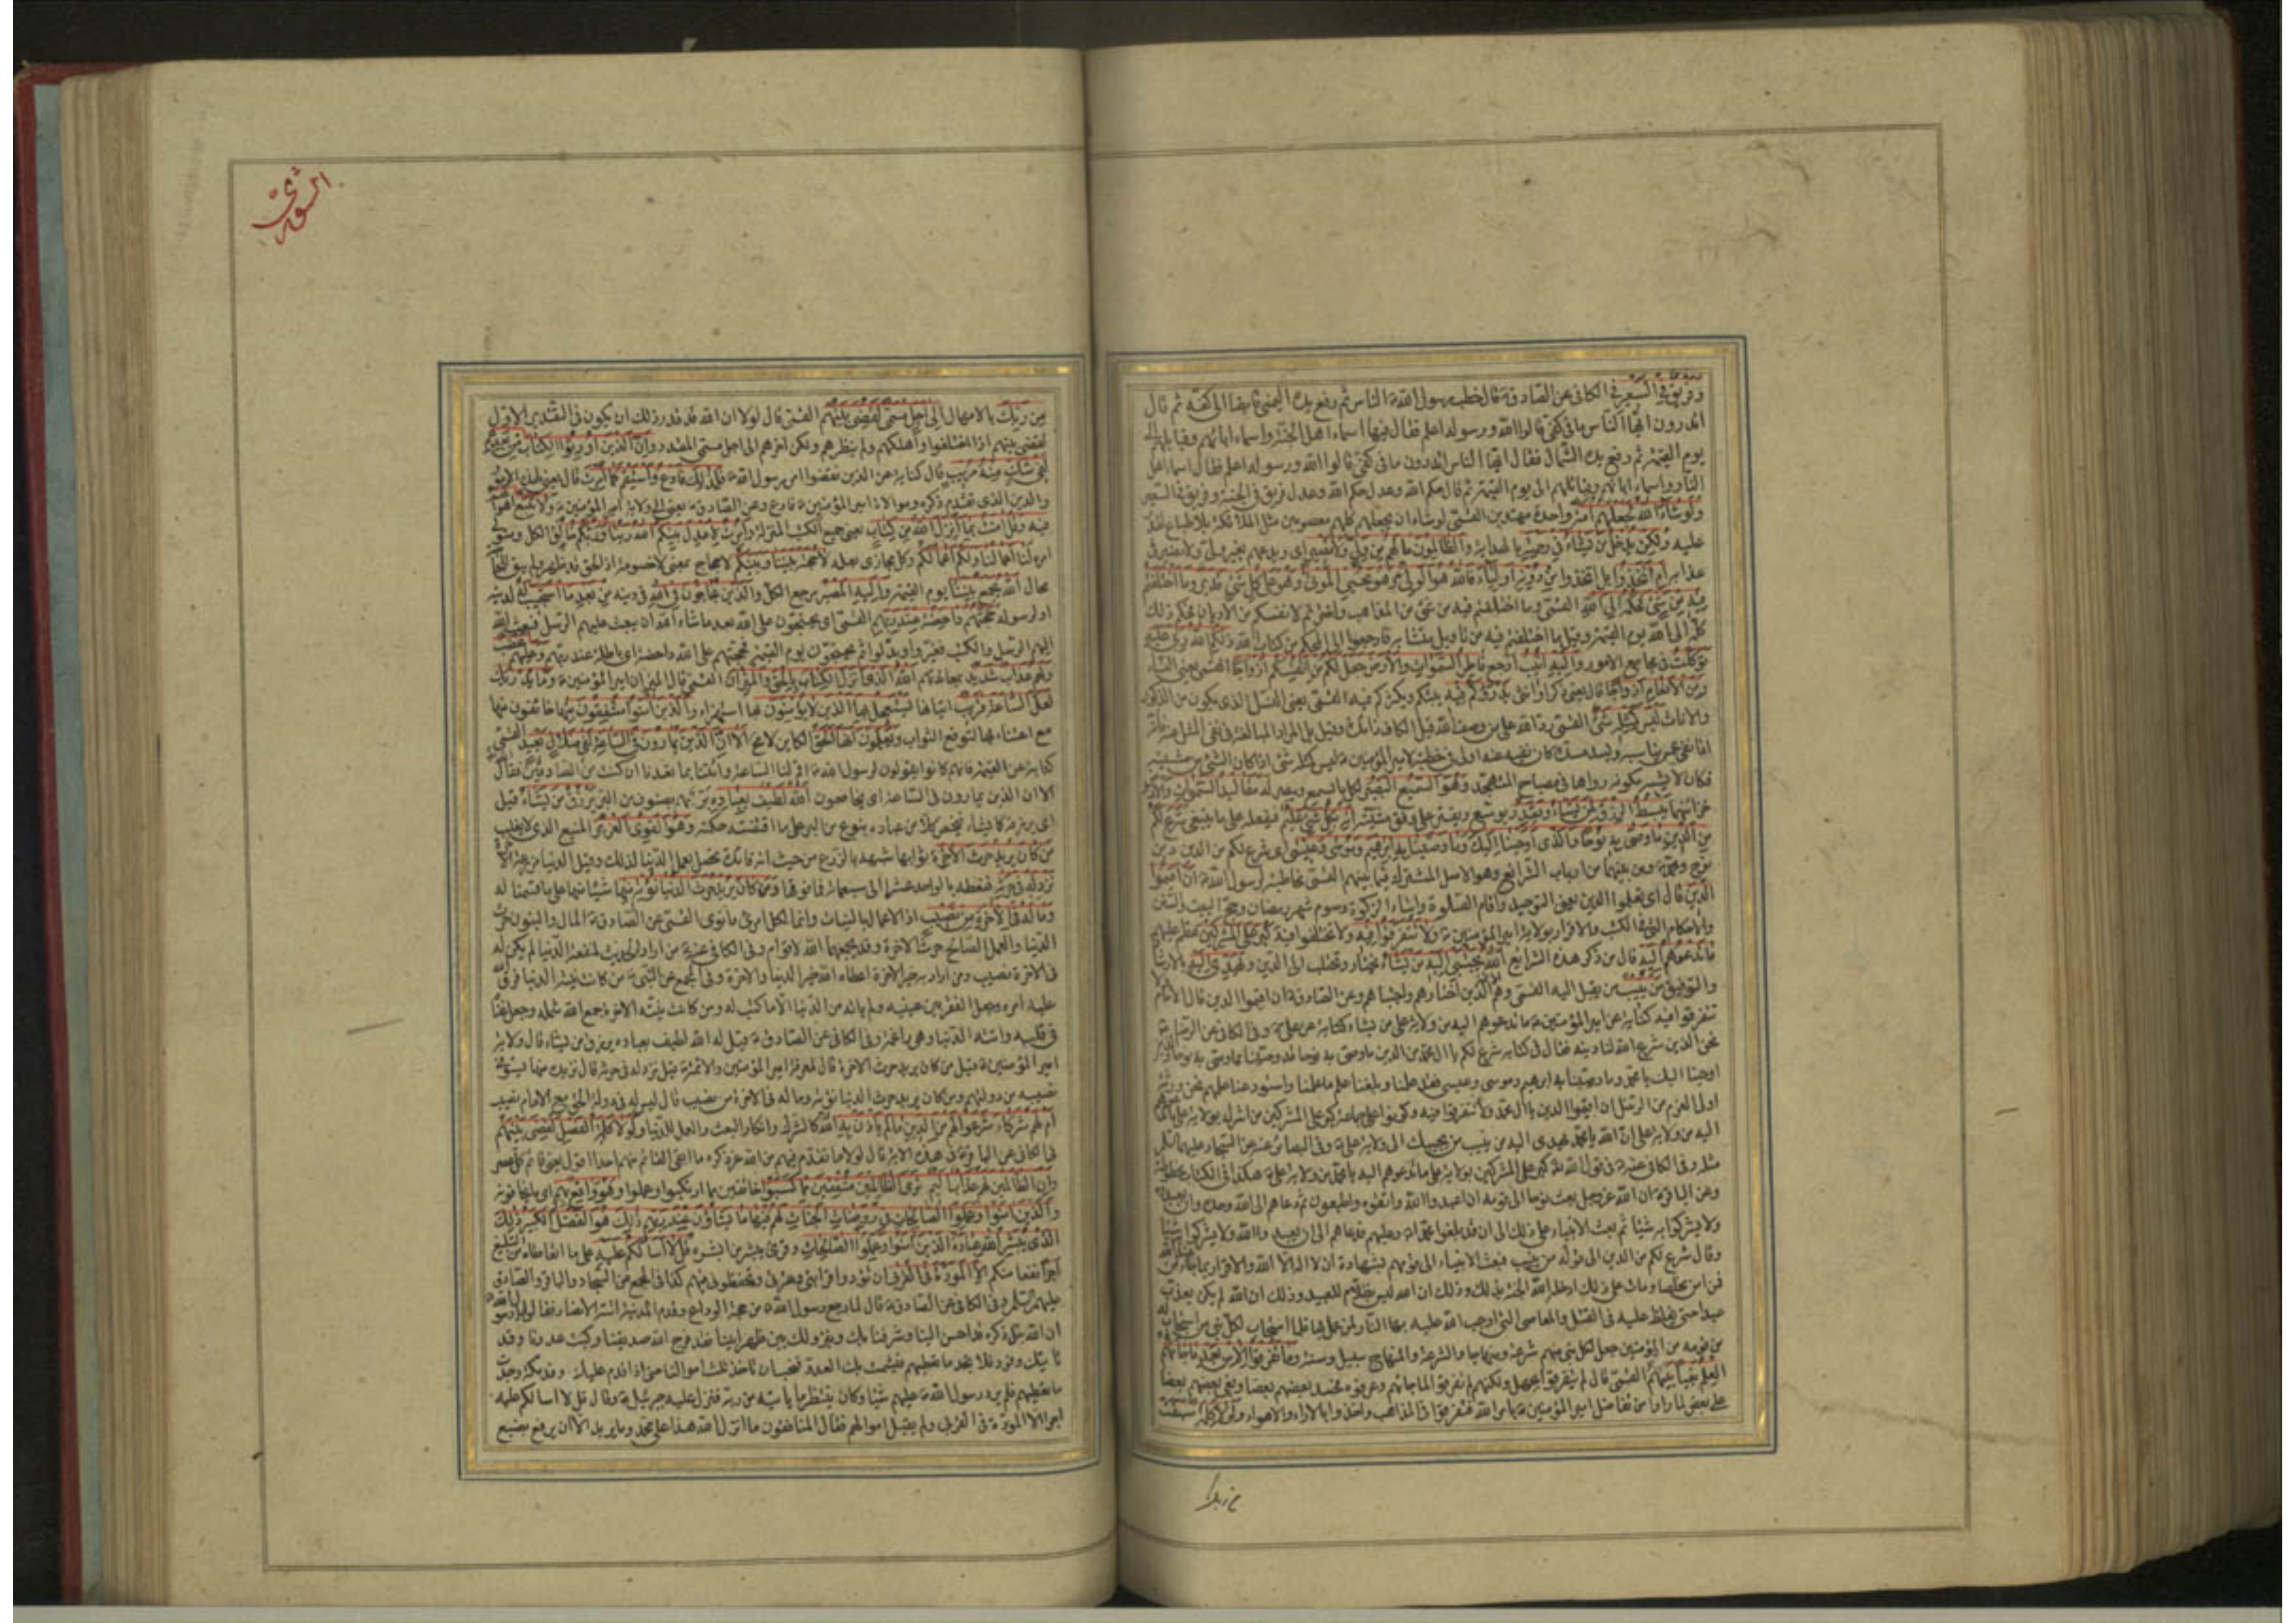 وفريق في السعير في الكافي عن الصادق ع قال خطب رسول الله ص الناس ثم رفع يده اليمنى قابضا الى كفه ثم قال
اتدرون ايها الناس ما في كفي قالوا الله ورسوله اعلم فقال فيها اسماء اهل الجنة واسماء ابائهم وقبايلهم الى
يوم القيمة ثم رفع يده الشمال فقال ايها الناس اتدرون ما في كفي قالوا الله ورسوله اعلم فقال اسماء اهل
النار واسماء ابائهم وقبائلهم الى يوم القيمة ثم قال حكم الله وعدل حكم الله وعدل فريق في الجنة وفريق في السعير
ولو شاء الله لجعلهم امة واحدة مهتدين القمي لو شاء ان يجعلهم كلهم معصومين مثل الملائكة بلا طباع لقدر
عليه ولكن يدخل من يشاء في رحمته بالهداية والظالمون ما لهم من ولي ولا نصير اي ويدعهم بغير ولي ولا نصير في
عذابه ام اتخذوا بل اتخذوا من دونه اولياء فالله هو الولي وهو يحيي الموتى وهو على كل شئ قدير وما اختلفتم
فيه من شئ فحكمه الى الله القمي وما اختلفتم فيه من شئ من المذاهب واخترتم لانفسكم من الاديان فحكم ذلك
كله الى الله يوم القيمة وقيل وما اختلفتم فيه من تأويل متشابه فارجعوا الى المحكم من كتاب الله ذلكم الله ربي عليه
توكلت في مجامع الامور واليه انيب ارجع فاطر السموات والارض جعل لكم من انفسكم ازواجا القمي يعني النساء
ومن الانعام ازواجا قال يعني ذكرا وانثى يذرؤكم فيه يبثكم ويكثركم فيه القمي يعني النسل الذي يكون من الذكور
والاناث ليس كمثله شئ القمي رد الله على من وصف الله قيل الكاف زائدة وقيل بل المراد المبالغة في نفي المثل عنه فانه
اذا نفي عمن يناسبه ويسد مسده كان نفيه عنه اولى في خطبة لامير المؤمنين ع ليس كمثله شئ اذ كان الشئ من مشيته
فكان لا يشبه مكونه رواها في مصباح المتهجد وهو السميع البصير لكل ما يسمع ويبصر له مقاليد السموات والارض
خزائنهما يبسط الرزق لمن يشاء ويقدر يوسع ويقتر على وفق مشيته انه بكل شئ عليم فيفعله على ما ينبغي شرع لكم
من الدين ما وصى به نوحا والذي اوحينا اليك وما وصينا به ابرهيم وموسى وعيسى اي شرع لكم من الدين دين
نوح ومحمد ص ومن بينهما من ارباب الشرائع وهو الاصل المشترك فيما بينهم القمي مخاطبة لرسول الله ص ان اقيموا
الدين قال اي تعلموا الدين يعني التوحيد واقام الصلوة وايتاء الزكوة وصوم شهر رمضان وحج البيت والسنن
والاحكام التي في الكتب والاقرار بولاية امير المؤمنين ع ولا تتفرقوا فيه ولا تختلفوا فيه كبر على المشركين عظم عليهم
ما تدعوهم اليه قال من ذكر هذه الشرائع الله يجتبي اليه من يشاء يختار ويجتلب الى الدين ويهدي اليه بالارشاد
والتوفيق من ينيب من يقبل اليه القمي وهم الذين اختارهم واجتباهم وعن الصادق ع ان اقيموا الدين قال الامام ولا
تتفرقوا فيه كناية عن امير المؤمنين ع ما تدعوهم اليه من ولاية علي من يشاء كناية عن علي ع وفي الكافي عن الرضا ع
نحن الذين شرع الله لنا دينه فقال في كتابه شرع لكم يا ال محمد من الدين ما وصى به نوحا قد وصينا بما وصى به نوحا والذي
اوحينا اليك يا محمد وما وصينا به ابرهيم وموسى وعيسى فقد علمنا وبلغنا علم ما علمنا واستودعنا علمهم نحن ورثة
اولى العزم من الرسل ان اقيموا الدين يا ال محمد ولا تتفرقوا فيه وكونوا على جماعة كبر على المشركين من اشرك بولاية علي ما تدعوهم
اليه من ولاية علي ان الله يا محمد يهدي اليه من ينيب من يجيبك الى ولاية علي ع وفي البصائر عنه عن السجاد عليهما السلام
مثله وفي الكافي عنه ع في قول الله كبر على المشركين بولاية علي ما تدعوهم اليه يا محمد من ولاية علي ع هكذا في الكتاب مخطوطة
وعن الباقر ع ان الله عز وجل بعث نوحا الى قومه ان اعبدوا الله واتقوه واطيعون ثم دعاهم الى الله وحده وان يعبدوه
ولا يشركوا به شيئا ثم بعث الانبياء على ذلك الى ان بلغوا محمدا ص وعليهم فدعاهم الى ان يعبدوا الله ولا يشركوا به شيئا
وقال شرع لكم من الدين الى قوله من ينيب فبعث الانبياء الى قومهم بشهادة ان لا اله الا الله والاقرار بما جاء من عند الله
فمن امن مخلصا ومات على ذلك ادخله الله الجنة بذلك وذلك ان الله ليس بظلام للعبيد وذلك ان الله لم يكن يعذب
عبدا حتى يغلظ عليه في القتل والمعاصي التي اوجب الله عليه بها النار لمن عمل بها فلما استجاب لكل نبي من استجاب له
من قومه من المؤمنين جعل لكل نبي منهم شرعة ومنهاجا والشرعة والمنهاج سبيل وسنة وما تفرقوا الا من بعد ما جائهم
العلم بغيا بينهم القمي قال لم يتفرقوا بجهل ولكنهم تفرقوا لما جائهم وعرفوه فحسد بعضهم بعضا وبغى بعضهم بعضا
على بعض لما راوا من تفاضل امير المؤمنين ع بامر الله فتفرقوا في المذاهب واخذوا بالاراء والاهواء ولولا كلمة سبقت
من ربك
الشورى
من ربك بالامهال الى اجل مسمى لقضي بينهم القمي قال لولا ان الله قد قدر ذلك ان يكون في التقدير الاول
لقضي بينهم اذا اختلفوا واهلكهم ولم ينظرهم ولكن اخرهم الى اجل مسمى المقدر وان الذين اورثوا الكتاب من بعدهم
لفي شك منه مريب قال كناية عن الذين نقضوا امر رسول الله ص فلذلك فادع واستقم كما امرت قال يعني لهذه الامور
والدين الذي تقدم ذكره وموالاة امير المؤمنين ع فادع وعن الصادق ع يعني الى ولاية امير المؤمنين ع ولا تتبع اهوائهم
فيه وقل امنت بما انزل الله من كتاب يعني جميع الكتب المنزلة وامرت لاعدل بينكم الله ربنا وربكم خالق الكل ومتولي
امره لنا اعمالنا ولكم اعمالكم وكل مجازى بعمله لا حجة بيننا وبينكم لا حجاج بمعنى لا خصومة اذ الحق قد ظهر ولم يبق للمحاجة
مجال الله يجمع بيننا يوم القيمة واليه المصير مرجع الكل والذين يحاجون في الله في دينه من بعد ما استجيب له لدينه
او لرسوله حجتهم داحضة عند ربهم القمي اي يحتجون على الله بعد ما شاء الله ان يبعث عليهم الرسل فبعث الله
اليهم الرسل والكتب فغيروا وبدلوا ثم يحتجون يوم القيمة فحجتهم على الله داحضة اي باطلة عند ربهم وعليهم غضب
ولهم عذاب شديد بمعاندتهم الله الذي انزل الكتاب بالحق والميزان القمي قال الميزان امير المؤمنين ع وما يدريك
لعل الساعة قريب اتيانها يستعجل بها الذين لا يؤمنون بها استهزاء والذين امنوا مشفقون منها خائفون منها
مع اعتناء بها لتوقع الثواب ويعلمون انها الحق الكاين لا محة الا ان الذين يمارون في الساعة لفي ضلال بعيد القمي
كناية عن القيمة فانهم كانوا يقولون لرسول الله ص اقم لنا الساعة وائتنا بما تعدنا ان كنت من الصادقين فقال
الا ان الذين يمارون في الساعة اي يخاصمون الله لطيف بعباده بر بهم بصنوف من البر يرزق من يشاء قيل
اي يرزقه كما يشاء فيخص كلا من عباده بنوع من البر على ما اقتضته حكمته وهو القوي العزيز المنيع الذي لا يغلب
من كان يريد حرث الاخرة ثوابها شبهه بالزرع من حيث انه فائدة تحصل بعمل الدنيا لذلك وقيل الدنيا مزرعة الاخرة
نزد له في حرثه فنعطه بالواحد عشرا الى سبعمائة فما فوقها ومن كان يريد حرث الدنيا نؤته منها شيئا منها على ما قسمنا له
وما له في الاخرة من نصيب اذ الاعمال بالنيات وانما لكل امرئ ما نوى القمي عن الصادق ع المال والبنون حرث
الدنيا والعمل الصالح حرث الاخرة وقد يجمعهما الله لاقوام وفي الكافي عنه ع من اراد الحديث لمنفعة الدنيا لم يكن له
في الاخرة نصيب ومن اراد به خير الاخرة اعطاه الله خير الدنيا والاخرة وفي المجمع عن النبي ص من كانت نيته الدنيا فرق الله
عليه امره وجعل الفقر بين عينيه ولم يأته من الدنيا الا ما كتب له ومن كانت نيته الاخرة جمع الله شمله وجعل غناه
في قلبه واتته الدنيا وهي راغمة وفي الكافي عن الصادق ع قيل له الله لطيف بعباده يرزق من يشاء قال ولاية
امير المؤمنين ع قيل من كان يريد حرث الاخرة قال معرفة امير المؤمنين والائمة قيل نزد له في حرثه قال نزيده منها يستوفي
نصيبه من دولتهم ومن كان يريد حرث الدنيا نؤته منها وما له في الاخرة من نصيب قال ليس له في دولة الحق مع الامام نصيب
ام لهم شركاء شرعوا لهم من الدين ما لم يأذن به الله كالشرك وانكار البعث والعمل للدنيا ولولا كلمة الفصل لقضي بينهم
في الكافي عن الباقر ع في هذه الاية قال لولا ما تقدم فيهم من الله عز ذكره ما ابقى القائم منهم احدا اقول يعني قائم كل عصر
وان الظالمين لهم عذاب اليم ترى الظالمين مشفقين مما كسبوا خائفين مما ارتكبوا وعملوا وهو واقع بهم اي ما يخافونه
والذين امنوا وعملوا الصالحات في روضات الجنات لهم فيها ما يشاؤن عند ربهم ذلك هو الفضل الكبير ذلك
الذي يبشر الله عباده الذين امنوا وعملوا الصالحات وقرئ يبشر من ابشره قل لا اسألكم عليه على ما اتعاطاه من التبليغ
اجرا نفعا منكم الا المودة في القربى ان تودوا قرابتي وعترتي وتحفظوني فيهم كذا في المجمع عن السجاد والباقر والصادق
عليهم السلم وفي الكافي عن الصادق ع قال لما رجع رسول الله ص من حجة الوداع وقدم المدينة اتته الانصار فقالوا يا رسول الله
ان الله جل ذكره قد احسن الينا وشرفنا بك وبنزولك بين ظهرانينا فقد فرح الله صديقنا وكبت عدونا وقد
تأتيك وفود فلا تجد ما تعطيهم فيشمت بك العدو فنحب ان تأخذ ثلث اموالنا حتى اذا قدم عليك وفد مكة وجدت
ما تعطيهم فلم يرد رسول الله ص عليهم شيئا وكان ينتظر ما يأتيه من ربه فنزل عليه جبرئيل ع وقال قل لا اسألكم عليه
اجرا الا المودة في القربى ولم يقبل اموالهم فقال المنافقون ما انزل الله هذا على محمد وما يريد الا ان يرفع بضبع